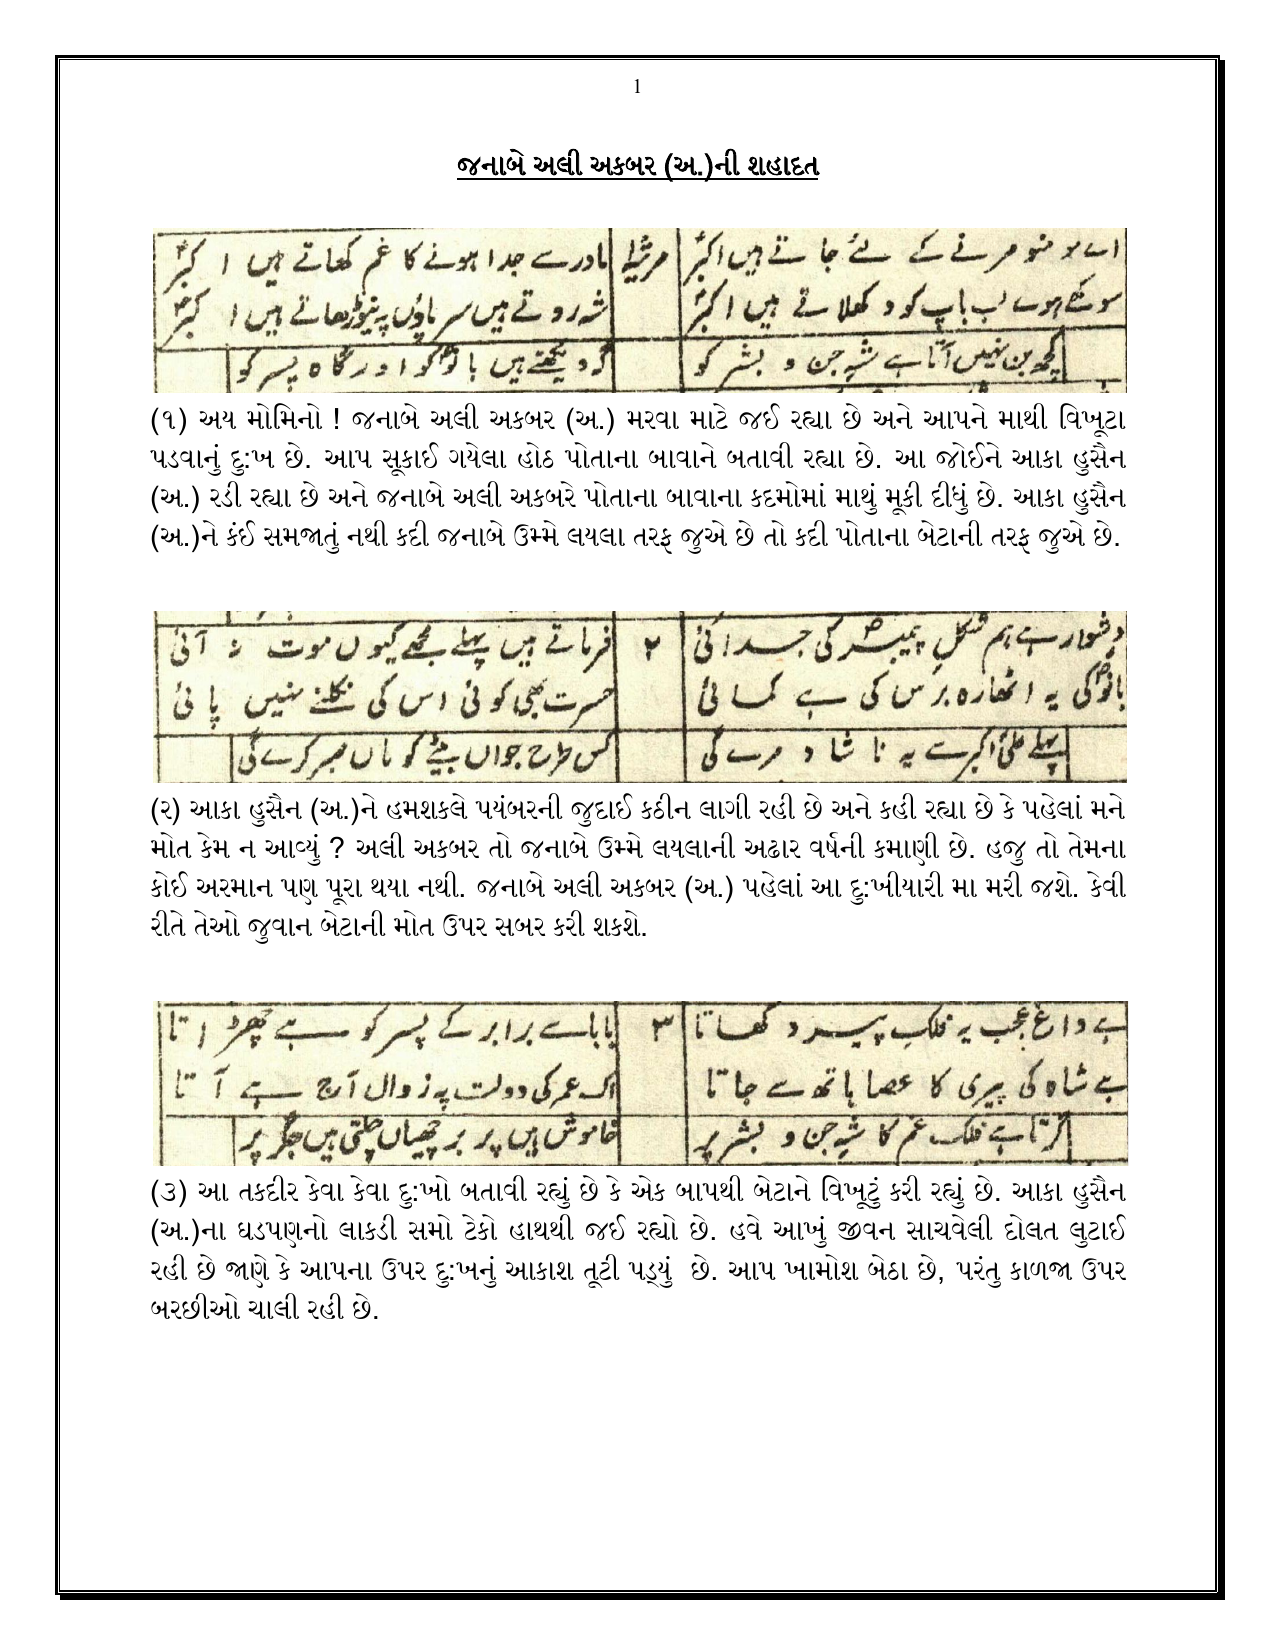 1
જનાબે અલી અકબર (અ.)ની શહાદત
اے مومنو مرنے کے لئے جاتے ہیں اکبرؑ مرثیہ مادر سے جدا ہونے کا غم کھاتے ہیں اکبرؑ
سوکھے ہوے لب باپ کو دکھلاتے ہیں اکبرؑ شہ روتے ہیں سر پاؤں پہ نیوڑھاتے ہیں اکبرؑ
کچھ بن نہیں آتا ہے شہِ جن و بشر کو گہ دیکھتے ہیں بانوؑ کو اور گاہ پسر کو
(૧) અય મોમિનો ! જનાબે અલી અકબર (અ.) મરવા માટે જઈ રહ્યા છે અને આપને માથી વિખૂટા
પડવાનું દુ:ખ છે. આપ સૂકાઈ ગયેલા હોઠ પોતાના બાવાને બતાવી રહ્યા છે. આ જોઈને આકા હુસૈન
(અ.) રડી રહ્યા છે અને જનાબે અલી અકબરે પોતાના બાવાના કદમોમાં માથું મૂકી દીધું છે. આકા હુસૈન
(અ.)ને કંઈ સમજાતું નથી કદી જનાબે ઉમ્મે લયલા તરફ જુએ છે તો કદી પોતાના બેટાની તરફ જુએ છે.
دشوار ہے ہم شکلِ پیمبرؐ کی جدائی ۲ فرماتے ہیں پہلے مجھے کیوں موت نہ آئی
بانوؑ کی یہ اٹھارہ برس کی ہے کمائی حسرت بھی کوئی اس کی نکلنے نہیں پائی
پہلے علی اکبرؑ سے یہ ناشاد مرے گی کس طرح جواں بیٹے کو ماں صبر کرے گی
(૨) આકા હુસૈન (અ.)ને હમશકલે પયંબરની જુદાઈ કઠીન લાગી રહી છે અને કહી રહ્યા છે કે પહેલાં મને
મોત કેમ ન આવ્યું ? અલી અકબર તો જનાબે ઉમ્મે લયલાની અઢાર વર્ષની કમાણી છે. હજુ તો તેમના
કોઈ અરમાન પણ પૂરા થયા નથી. જનાબે અલી અકબર (અ.) પહેલાં આ દુ:ખીયારી મા મરી જશે. કેવી
રીતે તેઓ જુવાન બેટાની મોત ઉપર સબર કરી શકશે.
ہے داغ عجب یہ فلکِ پیر دکھاتا ۳ بابا سے برابر کے پسر کو ہے چھڑاتا
ہے شاہ کی پیری کا عصا ہاتھ سے جاتا اک عمر کی دولت پہ زوال آج ہے آتا
گرتا ہے فلک غم کا شہِ جن و بشر پر خاموش ہیں پر برچھیاں چلتی ہیں جگر پر
(૩) આ તકદીર કેવા કેવા દુ:ખો બતાવી રહ્યું છે કે એક બાપથી બેટાને વિખૂટું કરી રહ્યું છે. આકા હુસૈન
(અ.)ના ઘડપણનો લાકડી સમો ટેકો હાથથી જઈ રહ્યો છે. હવે આખું જીવન સાચવેલી દોલત લુટાઈ
રહી છે જાણે કે આપના ઉપર દુ:ખનું આકાશ તૂટી પડ્યું છે. આપ ખામોશ બેઠા છે, પરંતુ કાળજા ઉપર
બરછીઓ ચાલી રહી છે.